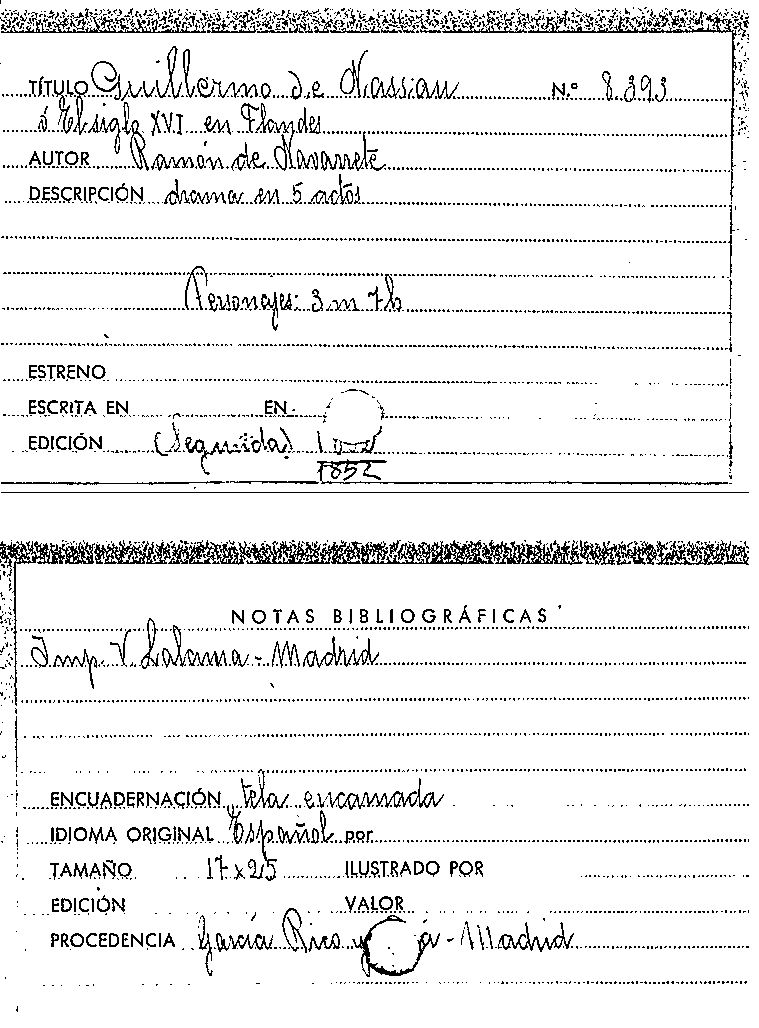 TÍTULO Guillermo de Nassau N.º 8.393
ó El siglo XVI en Flandes
AUTOR Ramón de Navarrete
DESCRIPCIÓN drama en 5 actos
Personajes: 3 m 7 h
ESTRENO
ESCRITA EN EN
EDICIÓN (Segunda)
1852
NOTAS BIBLIOGRÁFICAS
Imp. V. Lalama - Madrid
ENCUADERNACIÓN tela encarnada
IDIOMA ORIGINAL Español por
TAMAÑO 17 x 25 ILUSTRADO POR
EDICIÓN VALOR
PROCEDENCIA García Rico y - Madrid